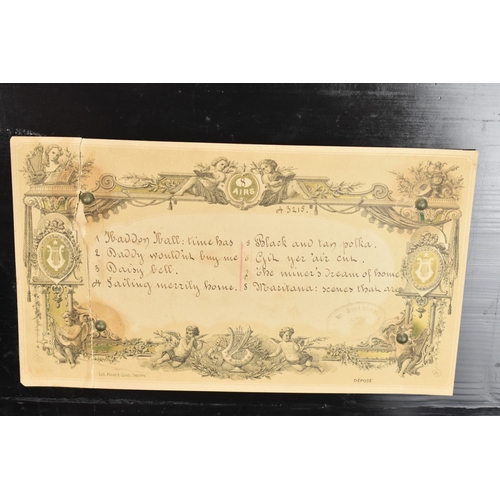 8
AIRS
№ 3215.
1 Haddon Hall: time has
2 Daddy wouldn't buy me
3 Daisy bell.
4 Sailing merrily home.
5 Black and tan polka.
6 Git yer 'air cut.
7 The miner's dream of home
8 Maritana: scenes that are
DÉPOSÉ